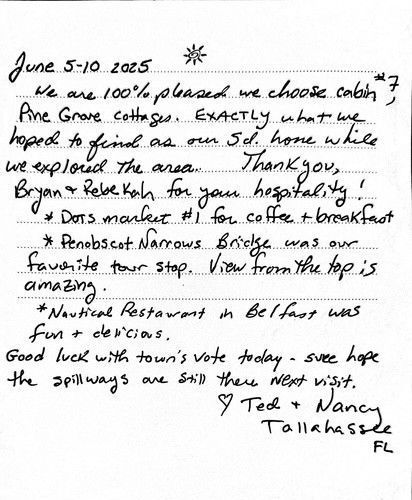 June 5-10 2025
We are 100% pleased we choose cabin #7,
Pine Grove Cottages. EXACTLY what we
hoped to find as our 5d. home while
we explored the area. Thank you,
Bryan & Rebekah for your hospitality!
* Dots market #1 for coffee + breakfast
* Penobscot Narrows Bridge was our
favorite tour stop. View from the top is
amazing.
* Nautical Restaurant in Belfast was
fun + delicious.
Good luck with town's vote today - suee hope
the spillways are still there next visit.
♡ Ted + Nancy
Tallahassee
FL